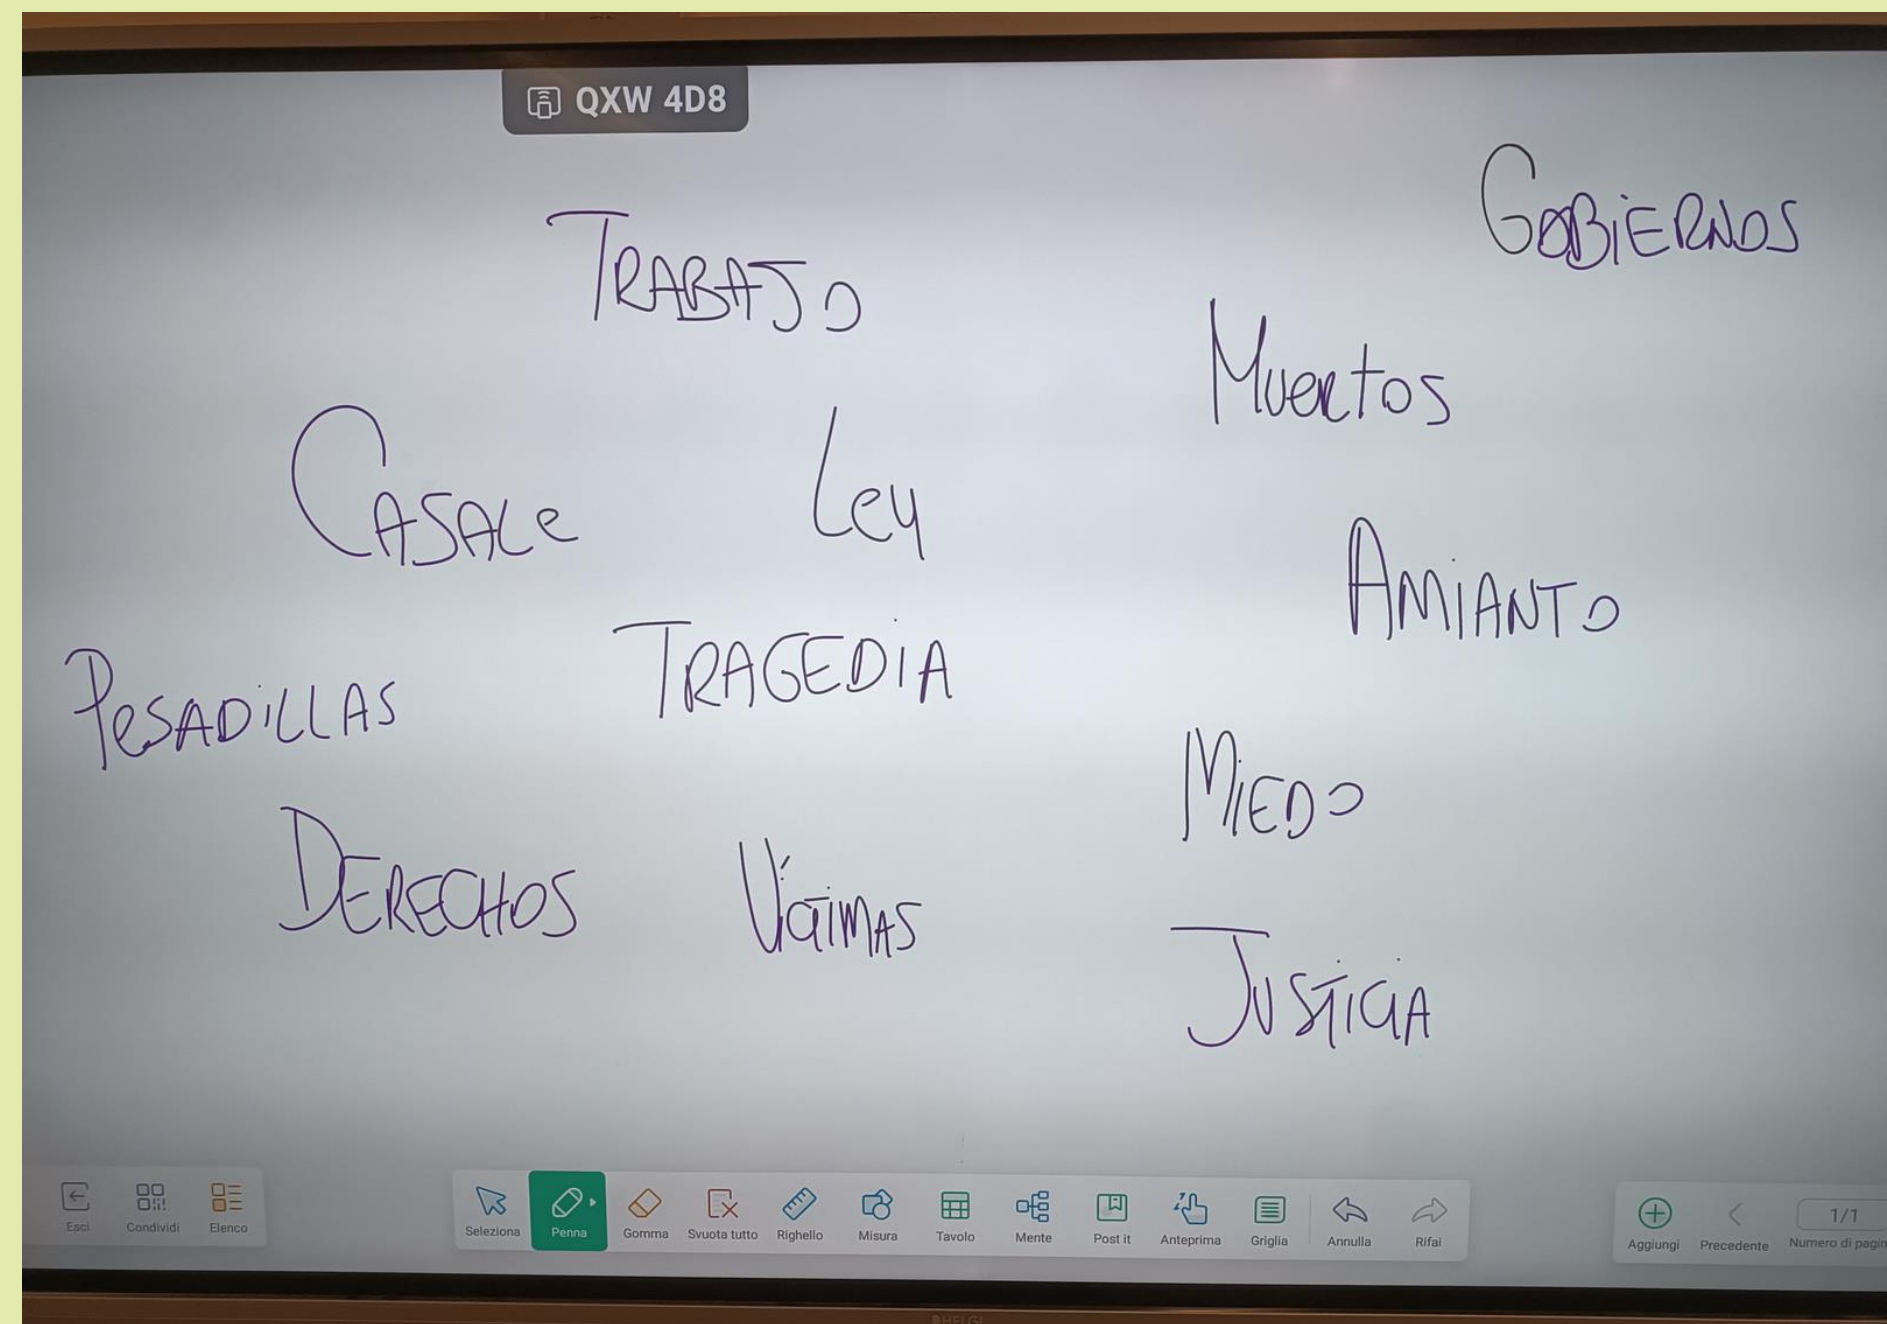 QXW 4D8
GOBiERNOS
TRABAJO
Muertos
CASALe
Ley
AMiANTO
TRAGEDiA
PeSADiLLAS
MiEDO
DERECHOS
VíctiMAS
JUSTiCiA
Esci
Condividi
Elenco
Seleziona
Penna
Gomma
Svuota tutto
Righello
Misura
Tavolo
Mente
Post it
Anteprima
Griglia
Annulla
Rifai
Aggiungi
Precedente
1/1
Numero di pagin